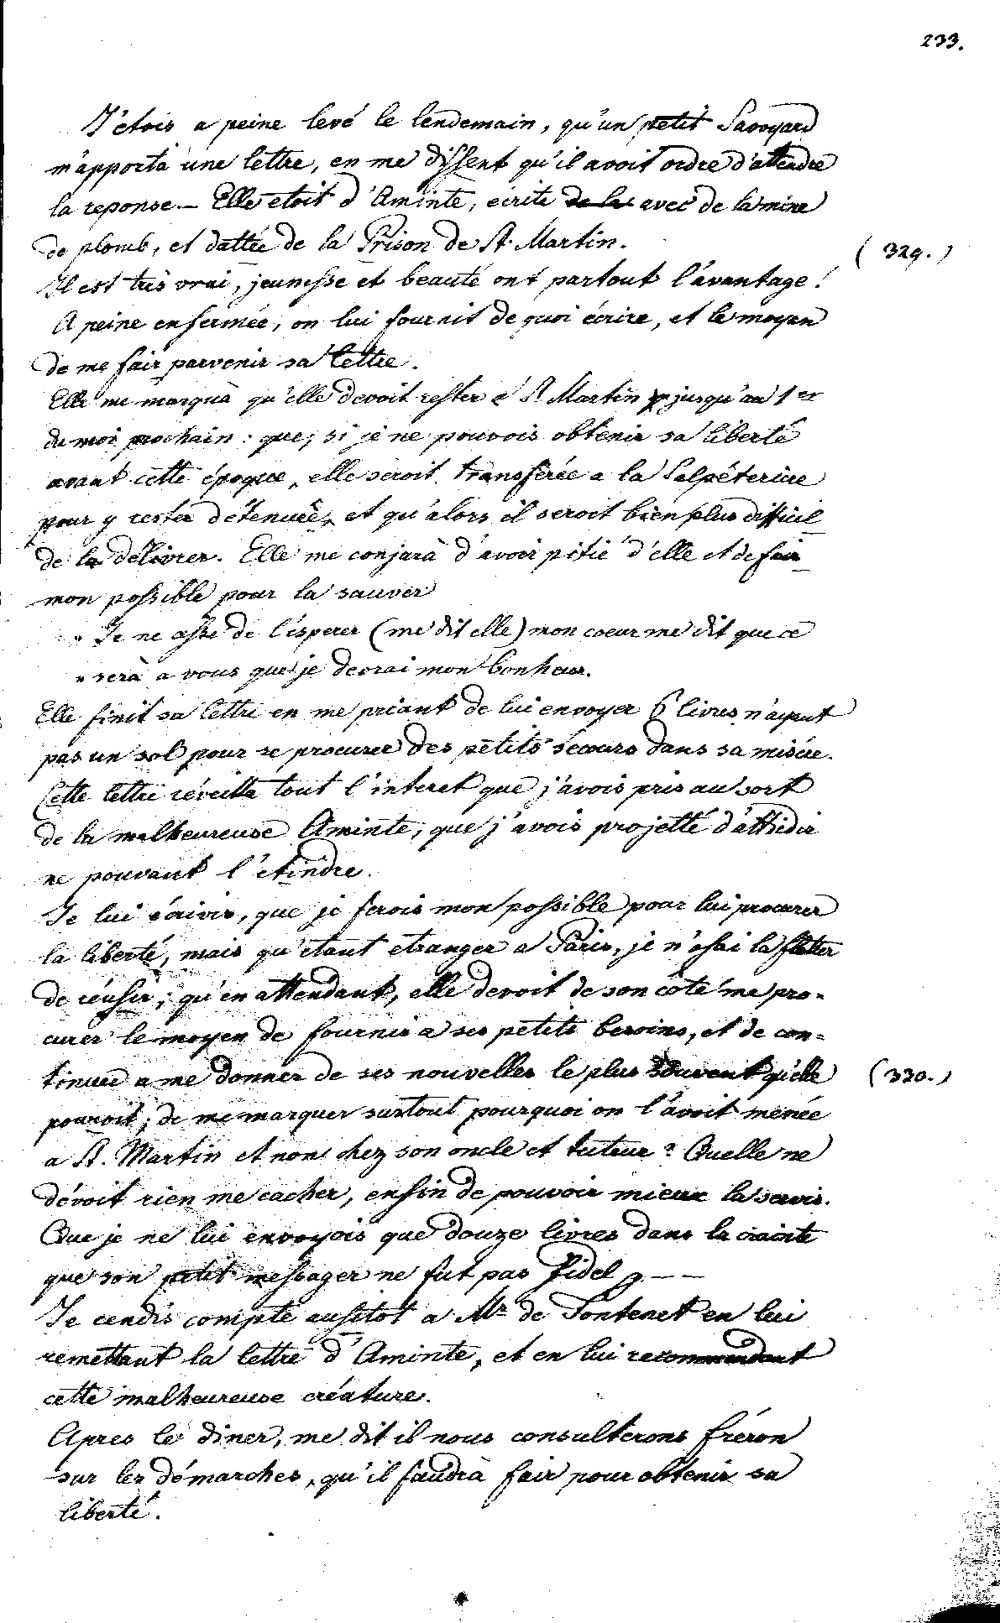 233.
J'étois a peine levé le lendemain, qu'un petit Savoyard
m'apporta une lettre, en me dissent qu'il avoit ordre d'attendre
la reponse. — Elle etoit d'Aminte, écrite de la avec de la mine
de plomb, et dattée de la Prison de St. Martin.
(329.)
Il est très vrai, jeunesse et beauté ont partout l'avantage!
A peine enfermée, on lui fournit de quoi écrire, et le moyen
de me fair parvenir sa lettre.
Elle me marqua qu'elle devoit rester a St Martin jusqu'au 1er
du moi prochain: que, si je ne pouvois obtenir sa liberté
avant cette époque, elle seroit transferée a la Salpéteriere
pour y rester détenuë, et qu'alors il seroit bien plus difficil
de la délivrer. Elle me conjurà d'avoir pitié d'elle et de fair
mon possible pour la sauver
" Je ne osse de l'ésperer (me dit elle) mon coeur me dit que ce
" serà a vous que je devrai mon bonheur.
Elle finit sa lettre en me priant de lui envoyer 6 livres n'ayant
pas un sol pour se procurer des petits secours dans sa misére.
Cette lettre réveilla tout l'interet que j'avois pris au sort
de la malheureuse Aminte, que j'avois projetté d'attiedir
ne pouvant l'éteindre.
Je lui écrivis, que je ferois mon possible pour lui procurer
la liberté, mais qu'etant etranger a Paris, je n'osai la flatter
de réussir; qu'en attendant, elle devoit de son coté me pro-
curer le moyen de fournir a ses petits besoins, et de con-
tinuer a me donner de ses nouvelles le plus souvent qu'elle
(330.)
pouroit; de me marquer surtout pourquoi on l'avoit menée
a St. Martin et non chez son oncle et tuteur? Quelle ne
dévoit rien me cacher, enfin de pouvoir mieux la servir.
Que je ne lui envoyois que douze livres dans la crainte
que son petit messager ne fut pas fidel
Je rendis compte ausitot a Mr de Fontenet en lui
remettant la lettre d'Aminte, et en lui recommendant
cette malheureuse créature.
Apres le diner, me dit il nous consulterons fréron
sur les démarches, qu'il faudrà fair pour obtenir sa
liberté.